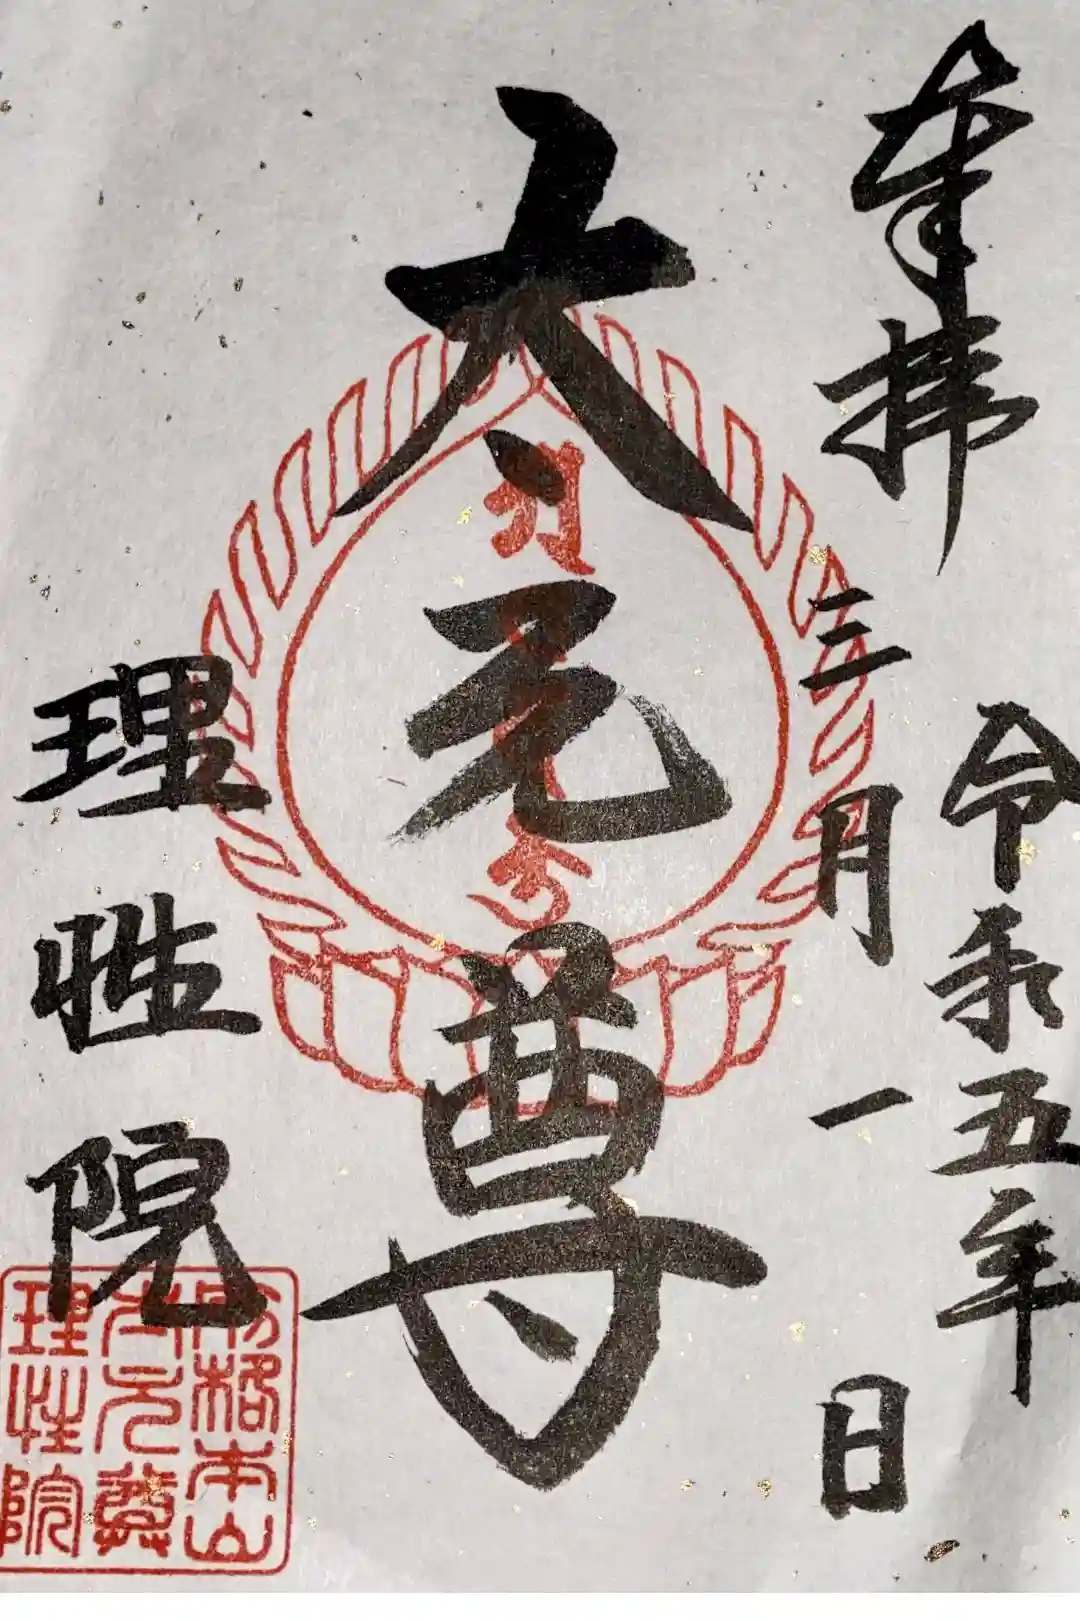 奉拝
令和五年
三月一日
太元尊
理性院
別格本山
太元尊
理性院